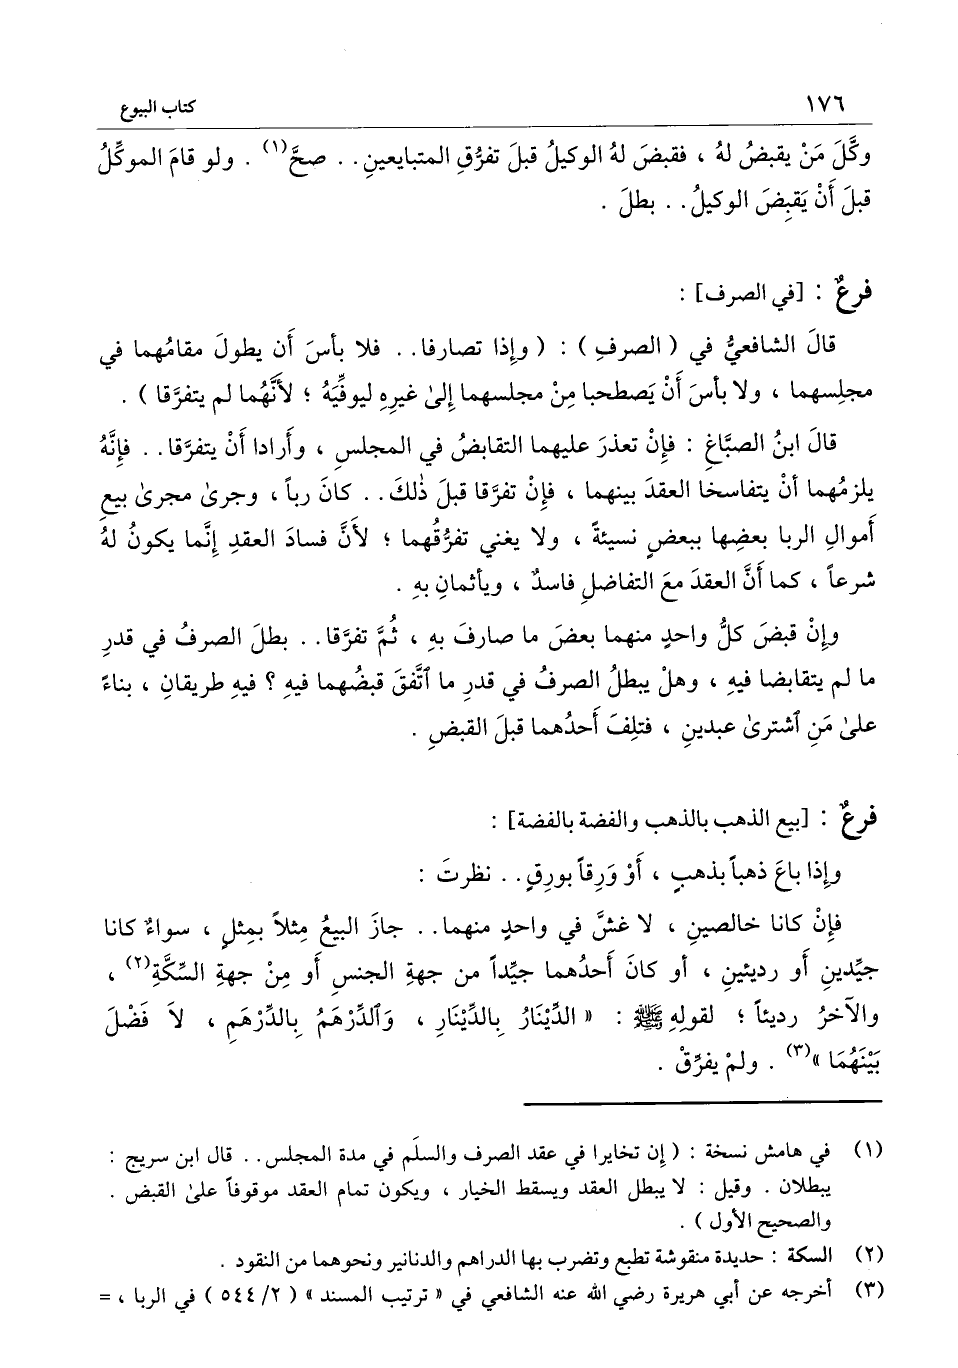 ١٧٦ كتاب البيوع
وكَّلَ مَنْ يقبضُ لهُ ، فقبضَ لهُ الوكيلُ قبلَ تفرُّقِ المتبايعينِ . . صحَّ(١) . ولو قامَ الموكِّلُ
قبلَ أَنْ يَقبِضَ الوكيلُ . . بطلَ .
فرعٌ : [في الصرف] :
قالَ الشافعيُّ في ( الصرفِ ) : ( وإِذا تصارفا . . فلا بأسَ أَن يطولَ مقامُهما في
مجلِسهما ، ولا بأسَ أَنْ يَصطحبا مِنْ مجلسهما إِلىٰ غيرِهِ ليوفِّيَهُ ؛ لأَنَّهُما لم يتفرَّقا ) .
قالَ ابنُ الصبَّاغِ : فإِنْ تعذرَ عليهما التقابضُ في المجلسِ ، وأَرادا أَنْ يتفرَّقا . . فإِنَّهُ
يلزمُهما أنْ يتفاسخا العقدَ بينهما ، فإِنْ تفرَّقا قبلَ ذٰلكَ . . كانَ رباً ، وجرىٰ مجرىٰ بيعِ
أَموالِ الربا بعضِها ببعضٍ نسيئةً ، ولا يغني تفرُّقُهما ؛ لأَنَّ فسادَ العقدِ إِنَّما يكونُ لهُ
شرعاً ، كما أَنَّ العقدَ معَ التفاضلِ فاسدٌ ، ويأثمانِ بهِ .
وإِنْ قبضَ كلُّ واحدٍ منهما بعضَ ما صارفَ بهِ ، ثُمَّ تفرَّقا . . بطلَ الصرفُ في قدرِ
ما لم يتقابضا فيهِ ، وهلْ يبطلُ الصرفُ في قدرِ ما ٱتَّفقَ قبضُهما فيهِ ؟ فيهِ طريقانِ ، بناءً
علىٰ مَنِ ٱشترىٰ عبدينِ ، فتلِفَ أَحدُهما قبلَ القبضِ .
فرعٌ : [بيع الذهب بالذهب والفضة بالفضة] :
وإِذا باعَ ذهباً بذهبٍ ، أَوْ وَرِقاً بورِقٍ . . نظرتَ :
فإِنْ كانا خالصينِ ، لا غشَّ في واحدٍ منهما . . جازَ البيعُ مِثلاً بمِثلٍ ، سواءٌ كانا
جيِّدينِ أَو رديئينِ ، أو كانَ أَحدُهما جيِّداً من جهةِ الجنسِ أَو مِنْ جهةِ السِّكَّةِ(٢) ،
والآخرُ رديئاً ؛ لقولِهِ ﷺ : « الدِّيْنَارُ بِالدِّيْنَارِ ، وَٱلدِّرْهَمُ بِالدِّرْهَمِ ، لاَ فَضْلَ
بَيْنَهُمَا »(٣) . ولمْ يفرِّقْ .
(١) في هامش نسخة : ( إن تخايرا في عقد الصرف والسلَم في مدة المجلس . . قال ابن سريج :
يبطلان . وقيل : لا يبطل العقد ويسقط الخيار ، ويكون تمام العقد موقوفاً علىٰ القبض .
والصحيح الأول ) .
(٢) السكة : حديدة منقوشة تطبع وتضرب بها الدراهم والدنانير ونحوهما من النقود .
(٣) أخرجه عن أبي هريرة رضي الله عنه الشافعي في « ترتيب المسند » ( ٢/ ٥٤٤ ) في الربا ، =